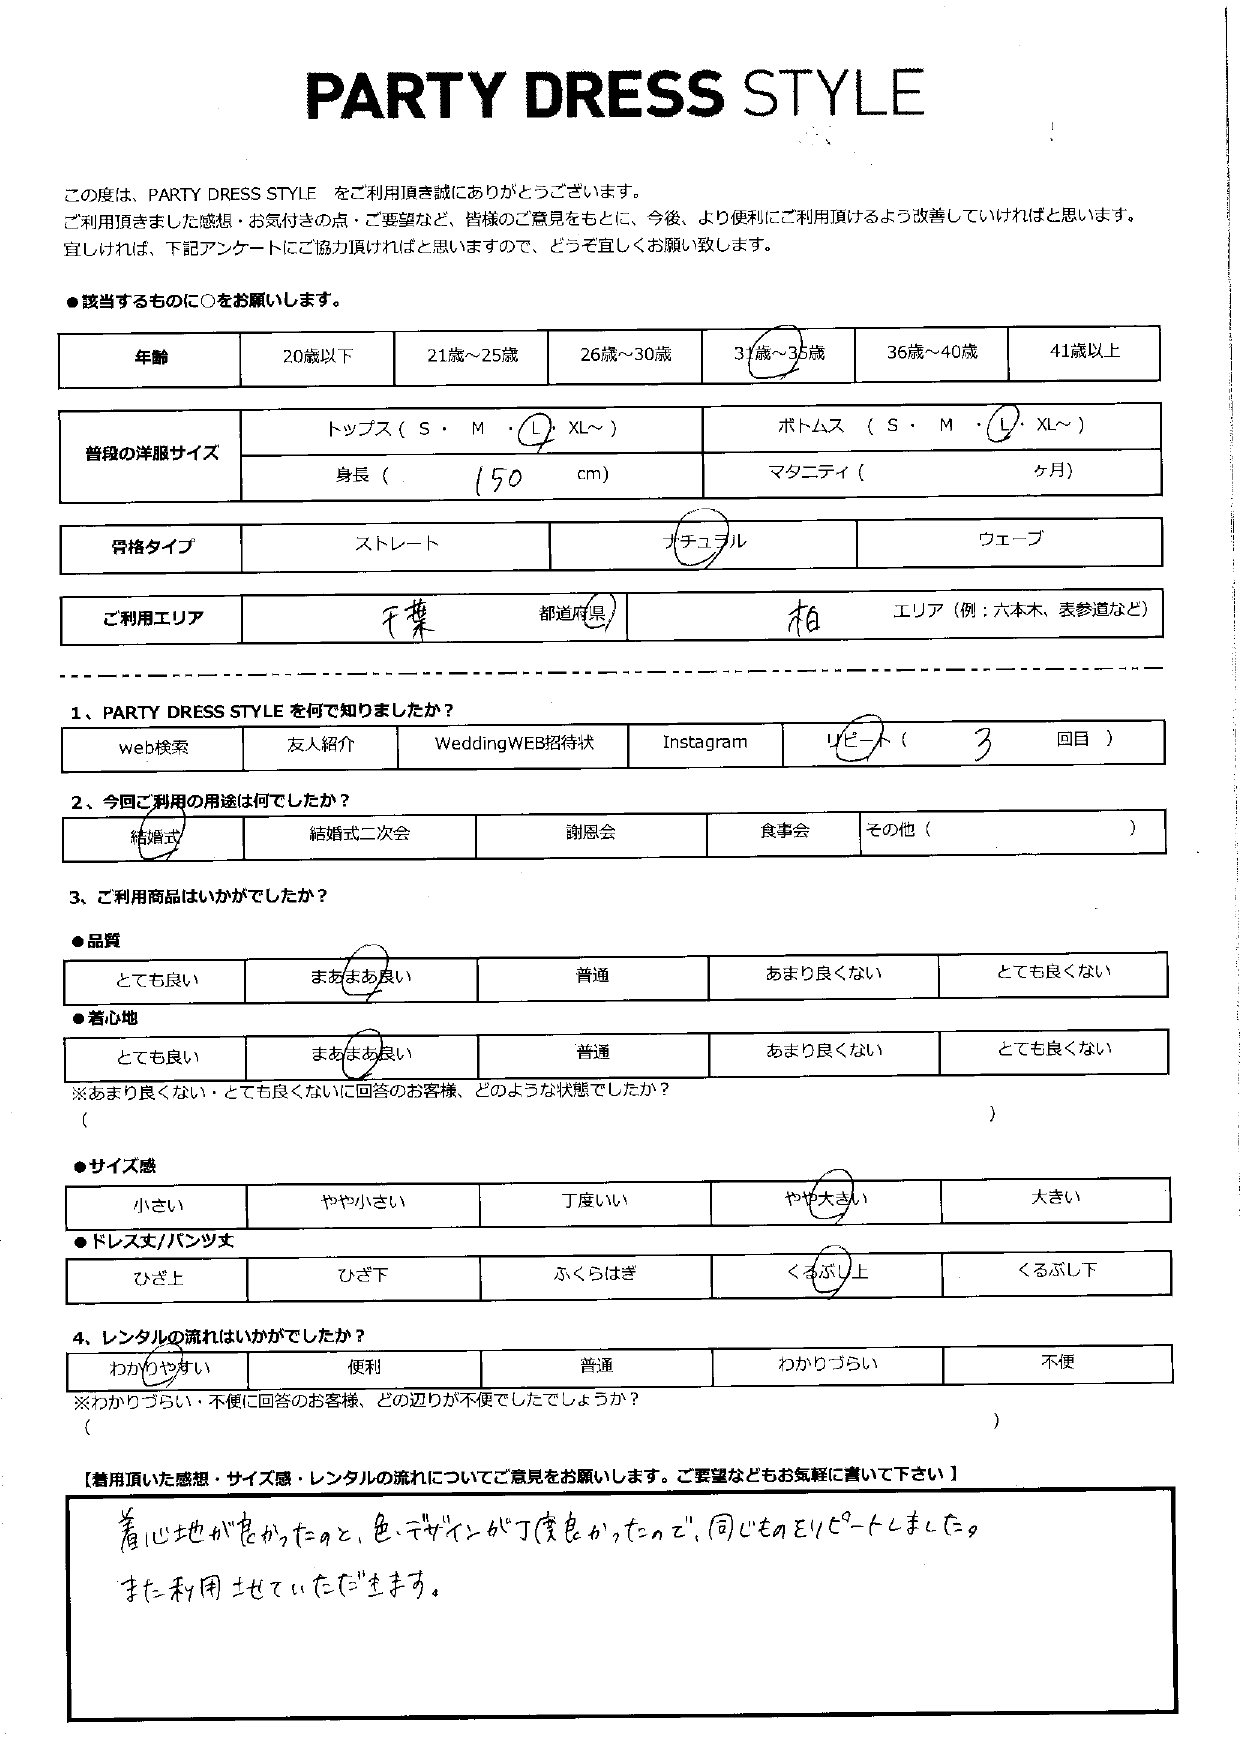 PARTY DRESS STYLE
この度は、PARTY DRESS STYLE をご利用頂き誠にありがとうございます。
ご利用頂きました感想・お気付きの点・ご要望など、皆様のご意見をもとに、今後、より便利にご利用頂けるよう改善していければと思います。
宜しければ、下記アンケートにご協力頂ければと思いますので、どうぞ宜しくお願い致します。
●該当するものに○をお願いします。
年齢 20歳以下 21歳～25歳 26歳～30歳 31歳～35歳 36歳～40歳 41歳以上
普段の洋服サイズ
トップス ( S ・ M ・ L ・ XL～ ) ボトムス ( S ・ M ・ L ・ XL～ )
身長 ( 150 cm) マタニティ ( ヶ月)
骨格タイプ ストレート ナチュラル ウェーブ
ご利用エリア 千葉 都道府県 柏 エリア（例：六本木、表参道など）
1、PARTY DRESS STYLE を何で知りましたか？
web検索 友人紹介 WeddingWEB招待状 Instagram リピート ( 3 回目 )
2、今回ご利用の用途は何でしたか？
結婚式 結婚式二次会 謝恩会 食事会 その他 ( )
3、ご利用商品はいかがでしたか？
●品質
とても良い まあまあ良い 普通 あまり良くない とても良くない
●着心地
とても良い まあまあ良い 普通 あまり良くない とても良くない
※あまり良くない・とても良くないに回答のお客様、どのような状態でしたか？
( )
●サイズ感
小さい やや小さい 丁度いい やや大きい 大きい
●ドレス丈/パンツ丈
ひざ上 ひざ下 ふくらはぎ くるぶし上 くるぶし下
4、レンタルの流れはいかがでしたか？
わかりやすい 便利 普通 わかりづらい 不便
※わかりづらい・不便に回答のお客様、どの辺りが不便でしたでしょうか？
( )
【着用頂いた感想・サイズ感・レンタルの流れについてご意見をお願いします。ご要望などもお気軽に書いて下さい 】
着心地が良かったのと、色・デザインが丁度良かったので、同じものをリピートしました。
また利用させていただきます。